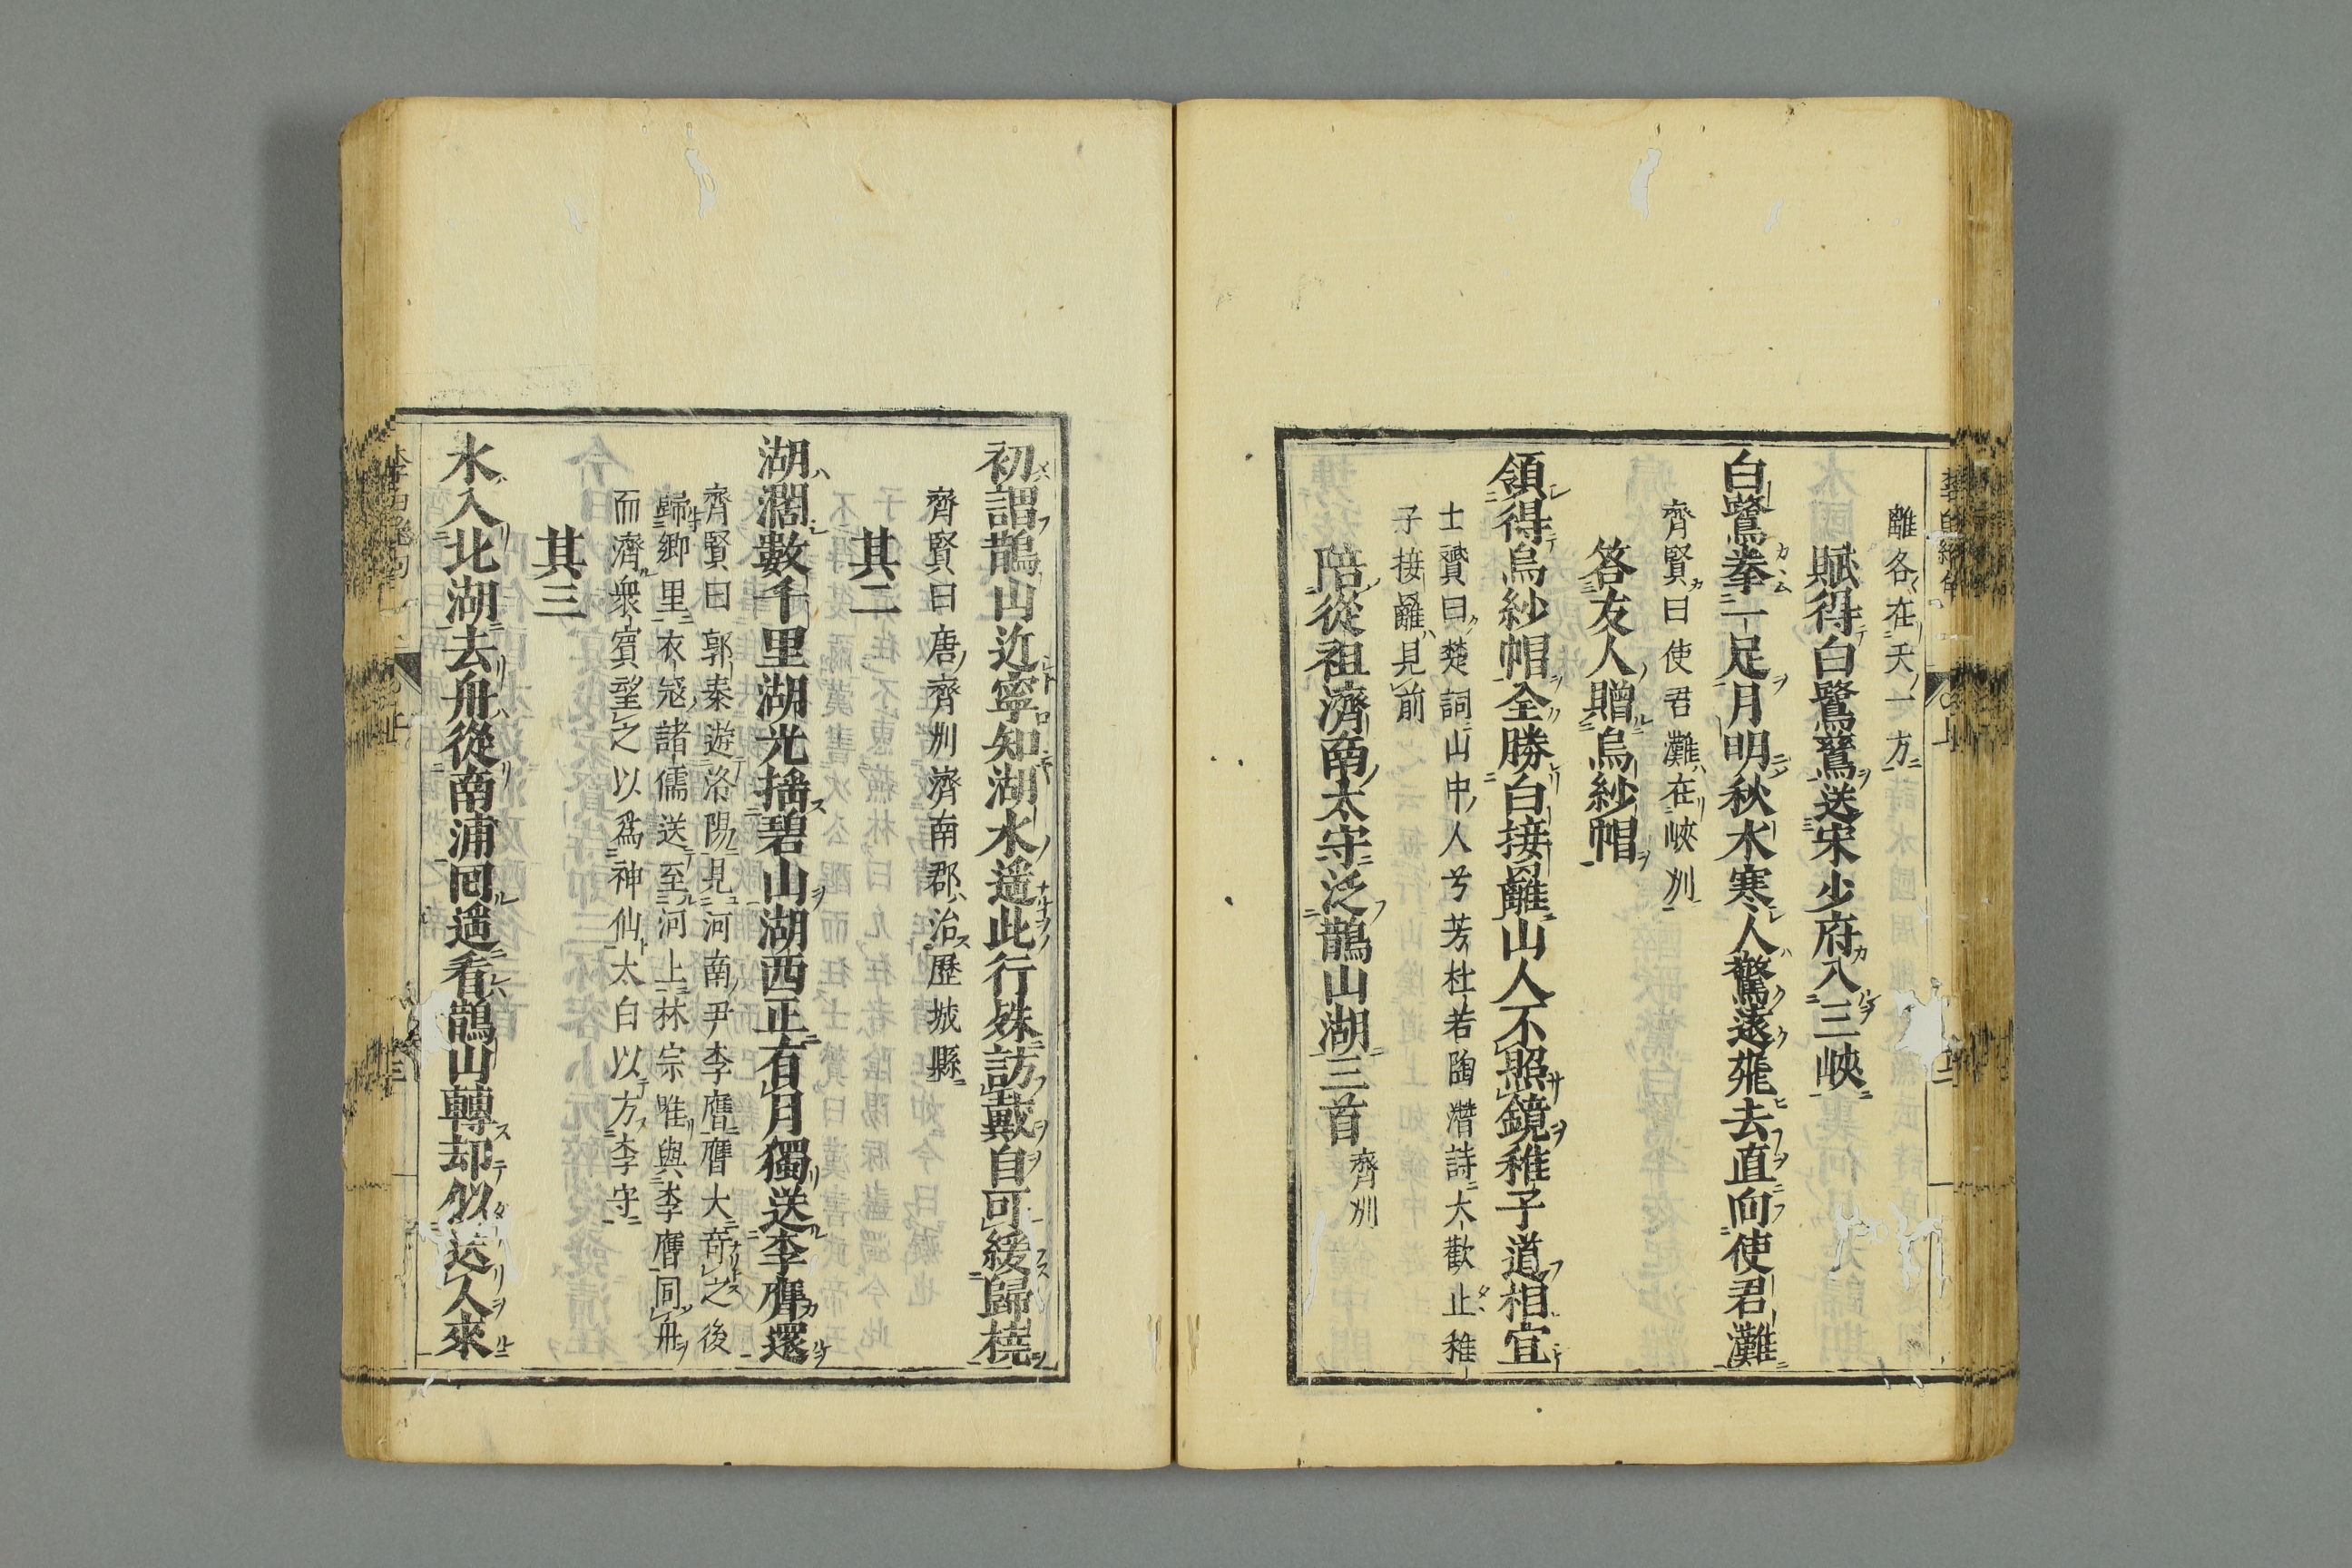 離各在天一方
賦得白鷺鷥送宋少府入三峽
白鷺拳一足月明秋水寒人驚遠飛去直向使君灘
齊賢曰使君灘在峽州
答友人贈烏紗帽
領得烏紗帽全勝白接䍦山人不照鏡稚子道相宜
士贇曰楚詞山中人兮芳杜若陶潛詩大歡止稚
子接䍦見前
陪從祖濟南太守泛鵲山湖三首 齊州
初謂鵲山近寧知湖水遥此行殊訪戴自可緩歸橈
齊賢曰唐齊州濟南郡治歷城縣
其二
湖濶數千里湖光揺碧山湖西正有月獨送李膺還
齊賢曰郭泰遊洛陽見河南尹李膺膺大竒之後
歸鄉里衣冠諸儒送至河上林宗唯與李膺同舟
而濟衆賓望之以爲神仙太白以方李守
其三
水入北湖去舟從南浦回遥看鵲山轉却似送人來